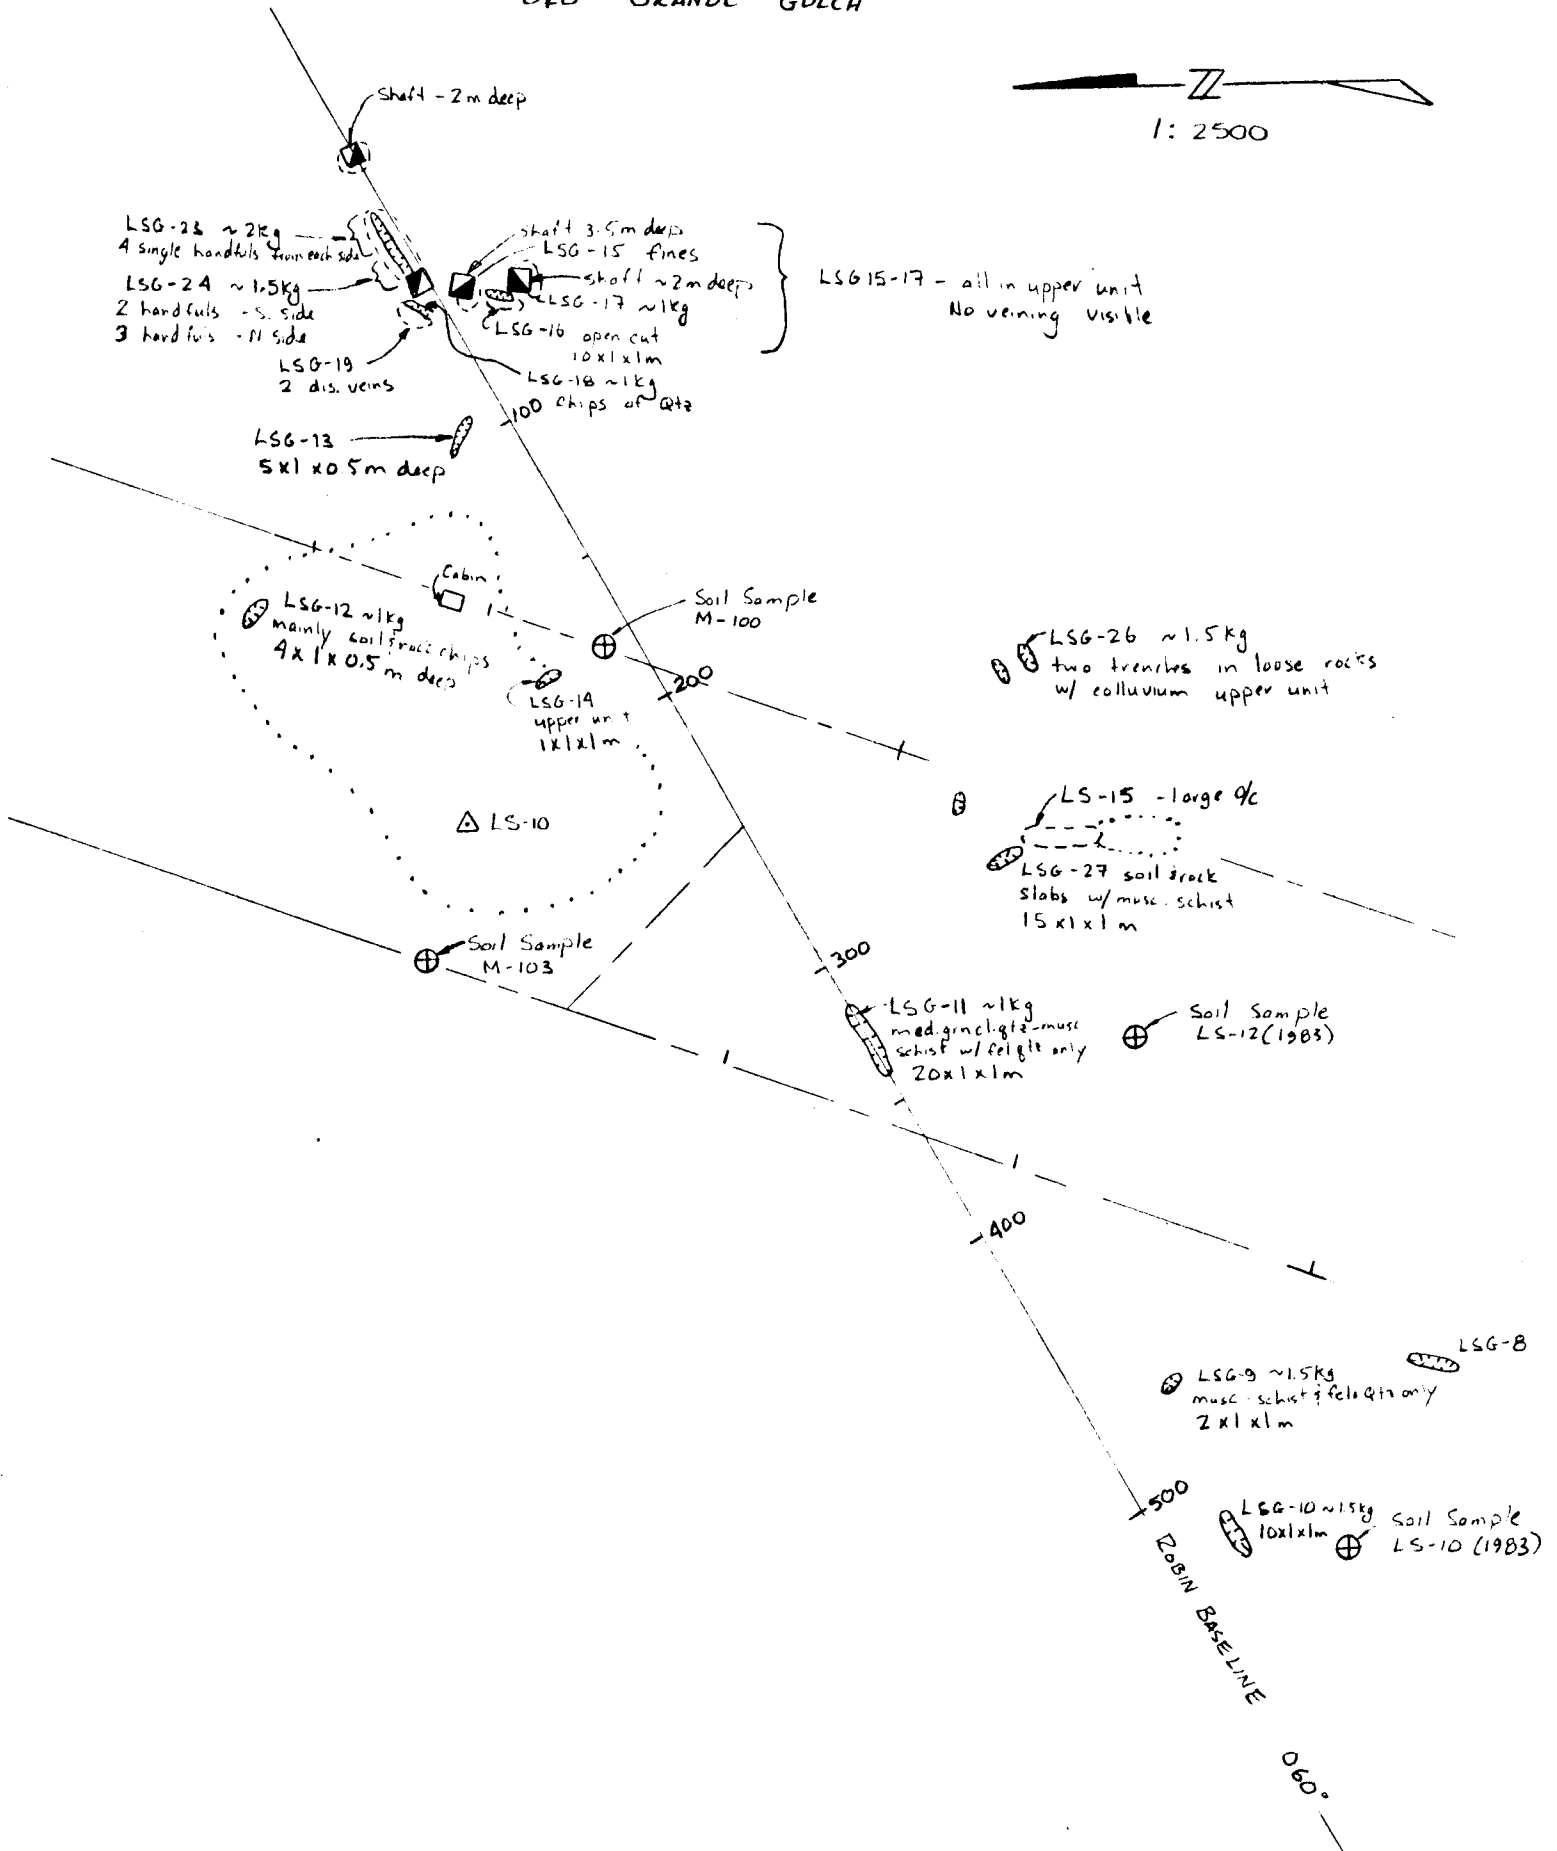 GRANDE GULCH
N
1: 2500
Shaft - 2m deep
LSG-23 ~2kg
4 single handfuls from each side
LSG-24 ~1.5kg
2 handfuls - S. side
3 handfuls - N side
LSG-19
2 dis. veins
shaft 3.5m deep
LSG-15 fines
shaft ~2m deep
LSG-17 ~1kg
LSG-16 open cut
10x1x1m
LSG-18 ~1kg
Chips of Qtz
LSG15-17 - all in upper unit
No veining visible
100
LSG-13
5x1x0.5m deep
Cabin
LSG-12 ~1kg
mainly soil & rock chips
4x1x0.5m deep
Soil Sample
M-100
200
LSG-14
upper unit
1x1x1m
LSG-26 ~1.5kg
two trenches in loose rocks
w/ colluvium upper unit
LS-10
LS-15 - large o/c
LSG-27 soil & rock
slabs w/ musc. schist
15x1x1m
Soil Sample
M-103
300
LSG-11 ~1kg
med. grncl. qtz-musc
schist w/ fel qtz only
20x1x1m
Soil Sample
LS-12 (1983)
400
LSG-8
LSG-9 ~1.5kg
musc. schist & fels Qtz only
2x1x1m
500
LSG-10 ~1.5kg
10x1x1m
Soil Sample
LS-10 (1983)
ROBIN BASELINE 060°